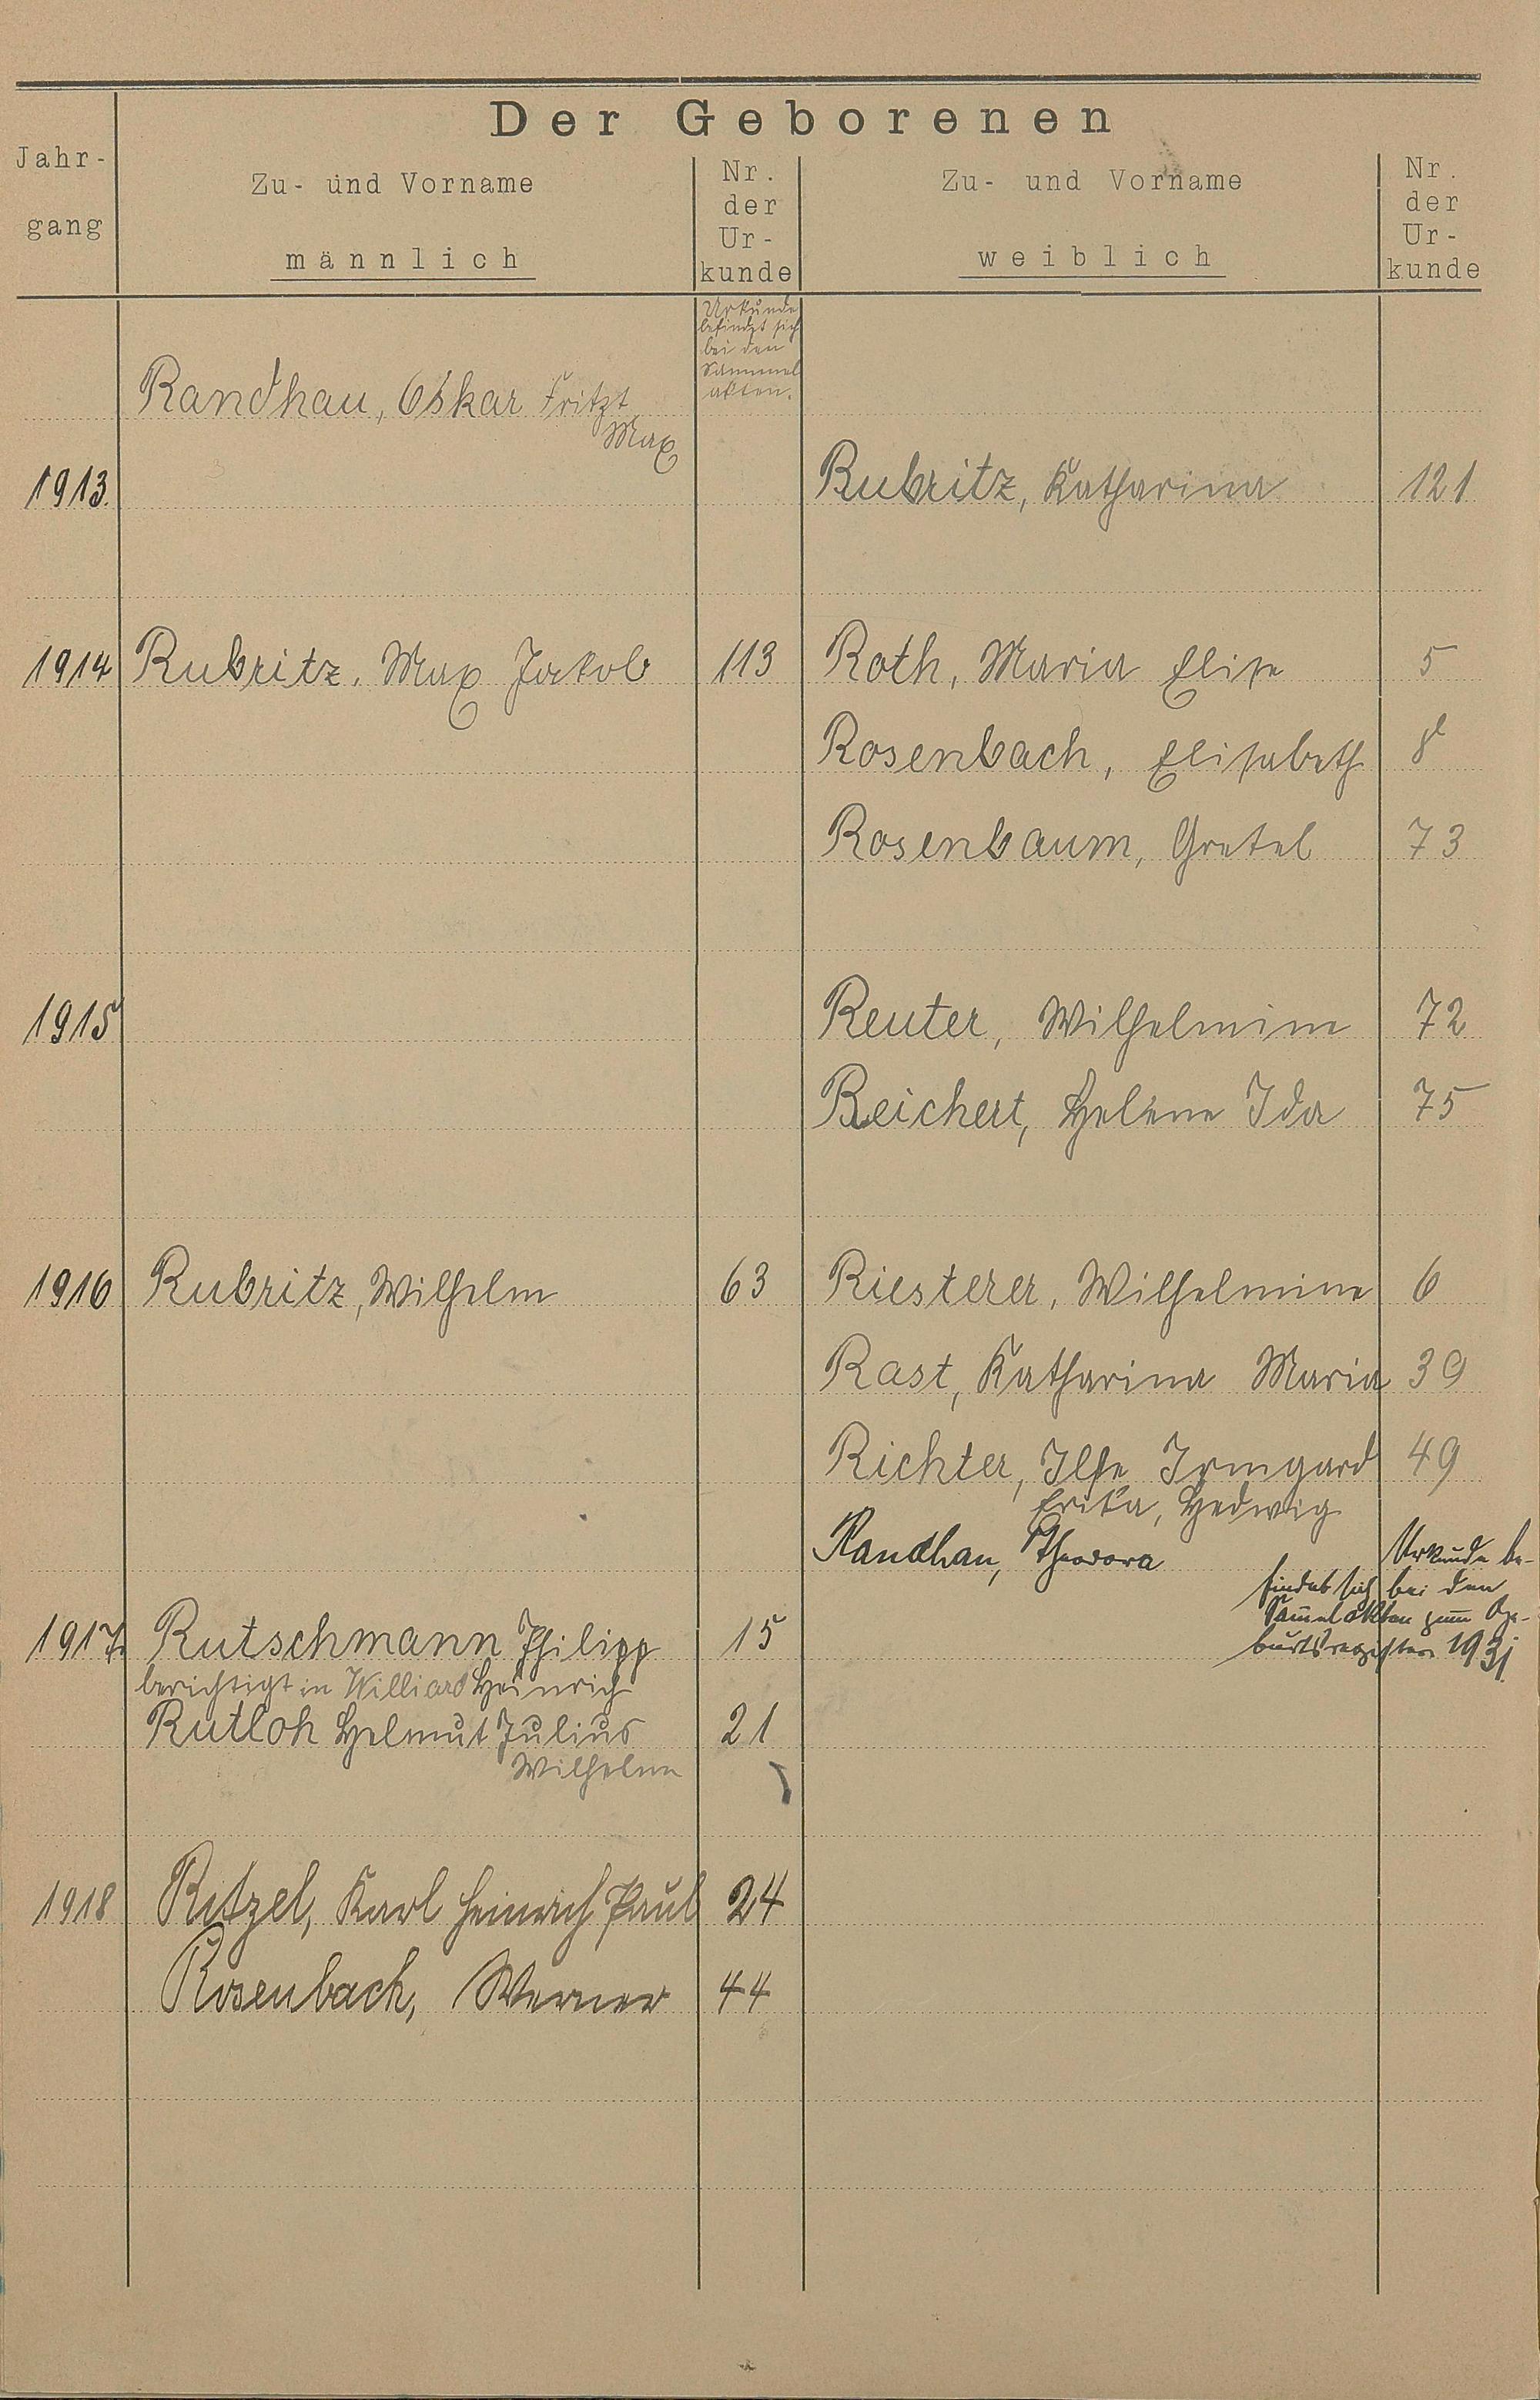 Der Geborenen
Jahr-
gang
Zu- und Vorname
männlich
Nr.
der
Ur-
kunde
Zu- und Vorname
weiblich
Nr.
der
Ur-
kunde
Urkunde
befindet sich
bei den
Sammel
akten.
Randhau, Oskar Fritz
Max
1913. Rubritz, Katharina 121
1914 Rubritz, Max Jakob 113 Roth, Maria Elise 5
Rosenbach, Elisabeth 8
Rosenbaum, Gretel 73
1915 Reuter, Wilhelmine 72
Reichert, Helene Ida 75
1916 Rubritz, Wilhelm 63 Riesterer, Wilhelmine 6
Rast, Katharina Maria 39
Richter, Ilse Irmgard 49
Erika, Hedwig
Randhau, Theodora Urkunde be-
findet sich bei den
Sam̅elakten zum Ge-
burtsregister 1931
1917. Rutschmann Philipp 15
berichtigt in Williard Heinrich
Rutloh Helmut Julius 21
Wilhelm
1918 Ritzel, Karl Heinrich Paul 24
Rosenbach, Werner 44